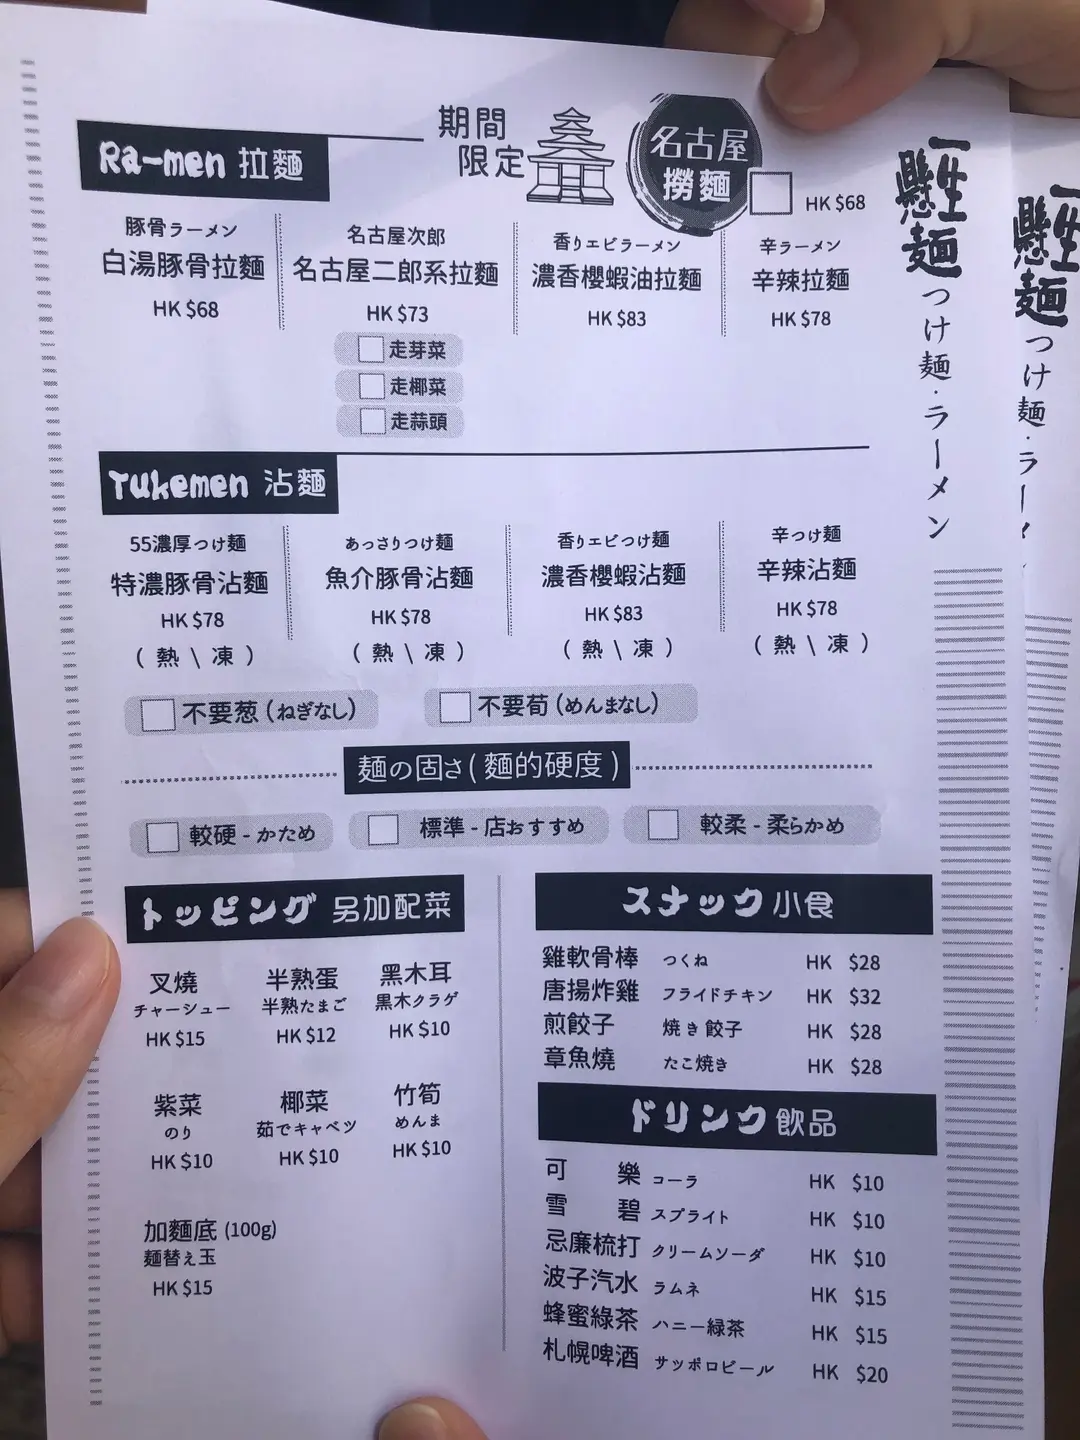 期間
限定
名古屋
撈麵
HK $68
Ra-men 拉麵
豚骨ラーメン
白湯豚骨拉麵
HK $68
名古屋次郎
名古屋二郎系拉麵
HK $73
走芽菜
走椰菜
走蒜頭
香りエビラーメン
濃香櫻蝦油拉麵
HK $83
辛ラーメン
辛辣拉麵
HK $78
Tukemen 沾麵
55濃厚つけ麺
特濃豚骨沾麵
HK $78
( 熱 \ 凍 )
あっさりつけ麺
魚介豚骨沾麵
HK $78
( 熱 \ 凍 )
香りエビつけ麺
濃香櫻蝦沾麵
HK $83
( 熱 \ 凍 )
辛つけ麺
辛辣沾麵
HK $78
( 熱 \ 凍 )
不要葱（ねぎなし）
不要荀（めんまなし）
麺の固さ( 麵的硬度 )
較硬 - かため
標準 - 店おすすめ
較柔 - 柔らかめ
トッピング 另加配菜
叉燒
チャーシュー
HK $15
半熟蛋
半熟たまご
HK $12
黑木耳
黒木クラゲ
HK $10
紫菜
のり
HK $10
椰菜
茹でキャベツ
HK $10
竹筍
めんま
HK $10
加麵底 (100g)
麺替え玉
HK $15
スナック 小食
雞軟骨棒 つくね HK $28
唐揚炸雞 フライドチキン HK $32
煎餃子 焼き餃子 HK $28
章魚燒 たこ焼き HK $28
ドリンク 飲品
可樂 コーラ HK $10
雪碧 スプライト HK $10
忌廉梳打 クリームソーダ HK $10
波子汽水 ラムネ HK $15
蜂蜜綠茶 ハニー緑茶 HK $15
札幌啤酒 サッポロビール HK $20
一生
懸麺
つけ麺・ラーメン
一生
懸麺
つけ麺・ラー